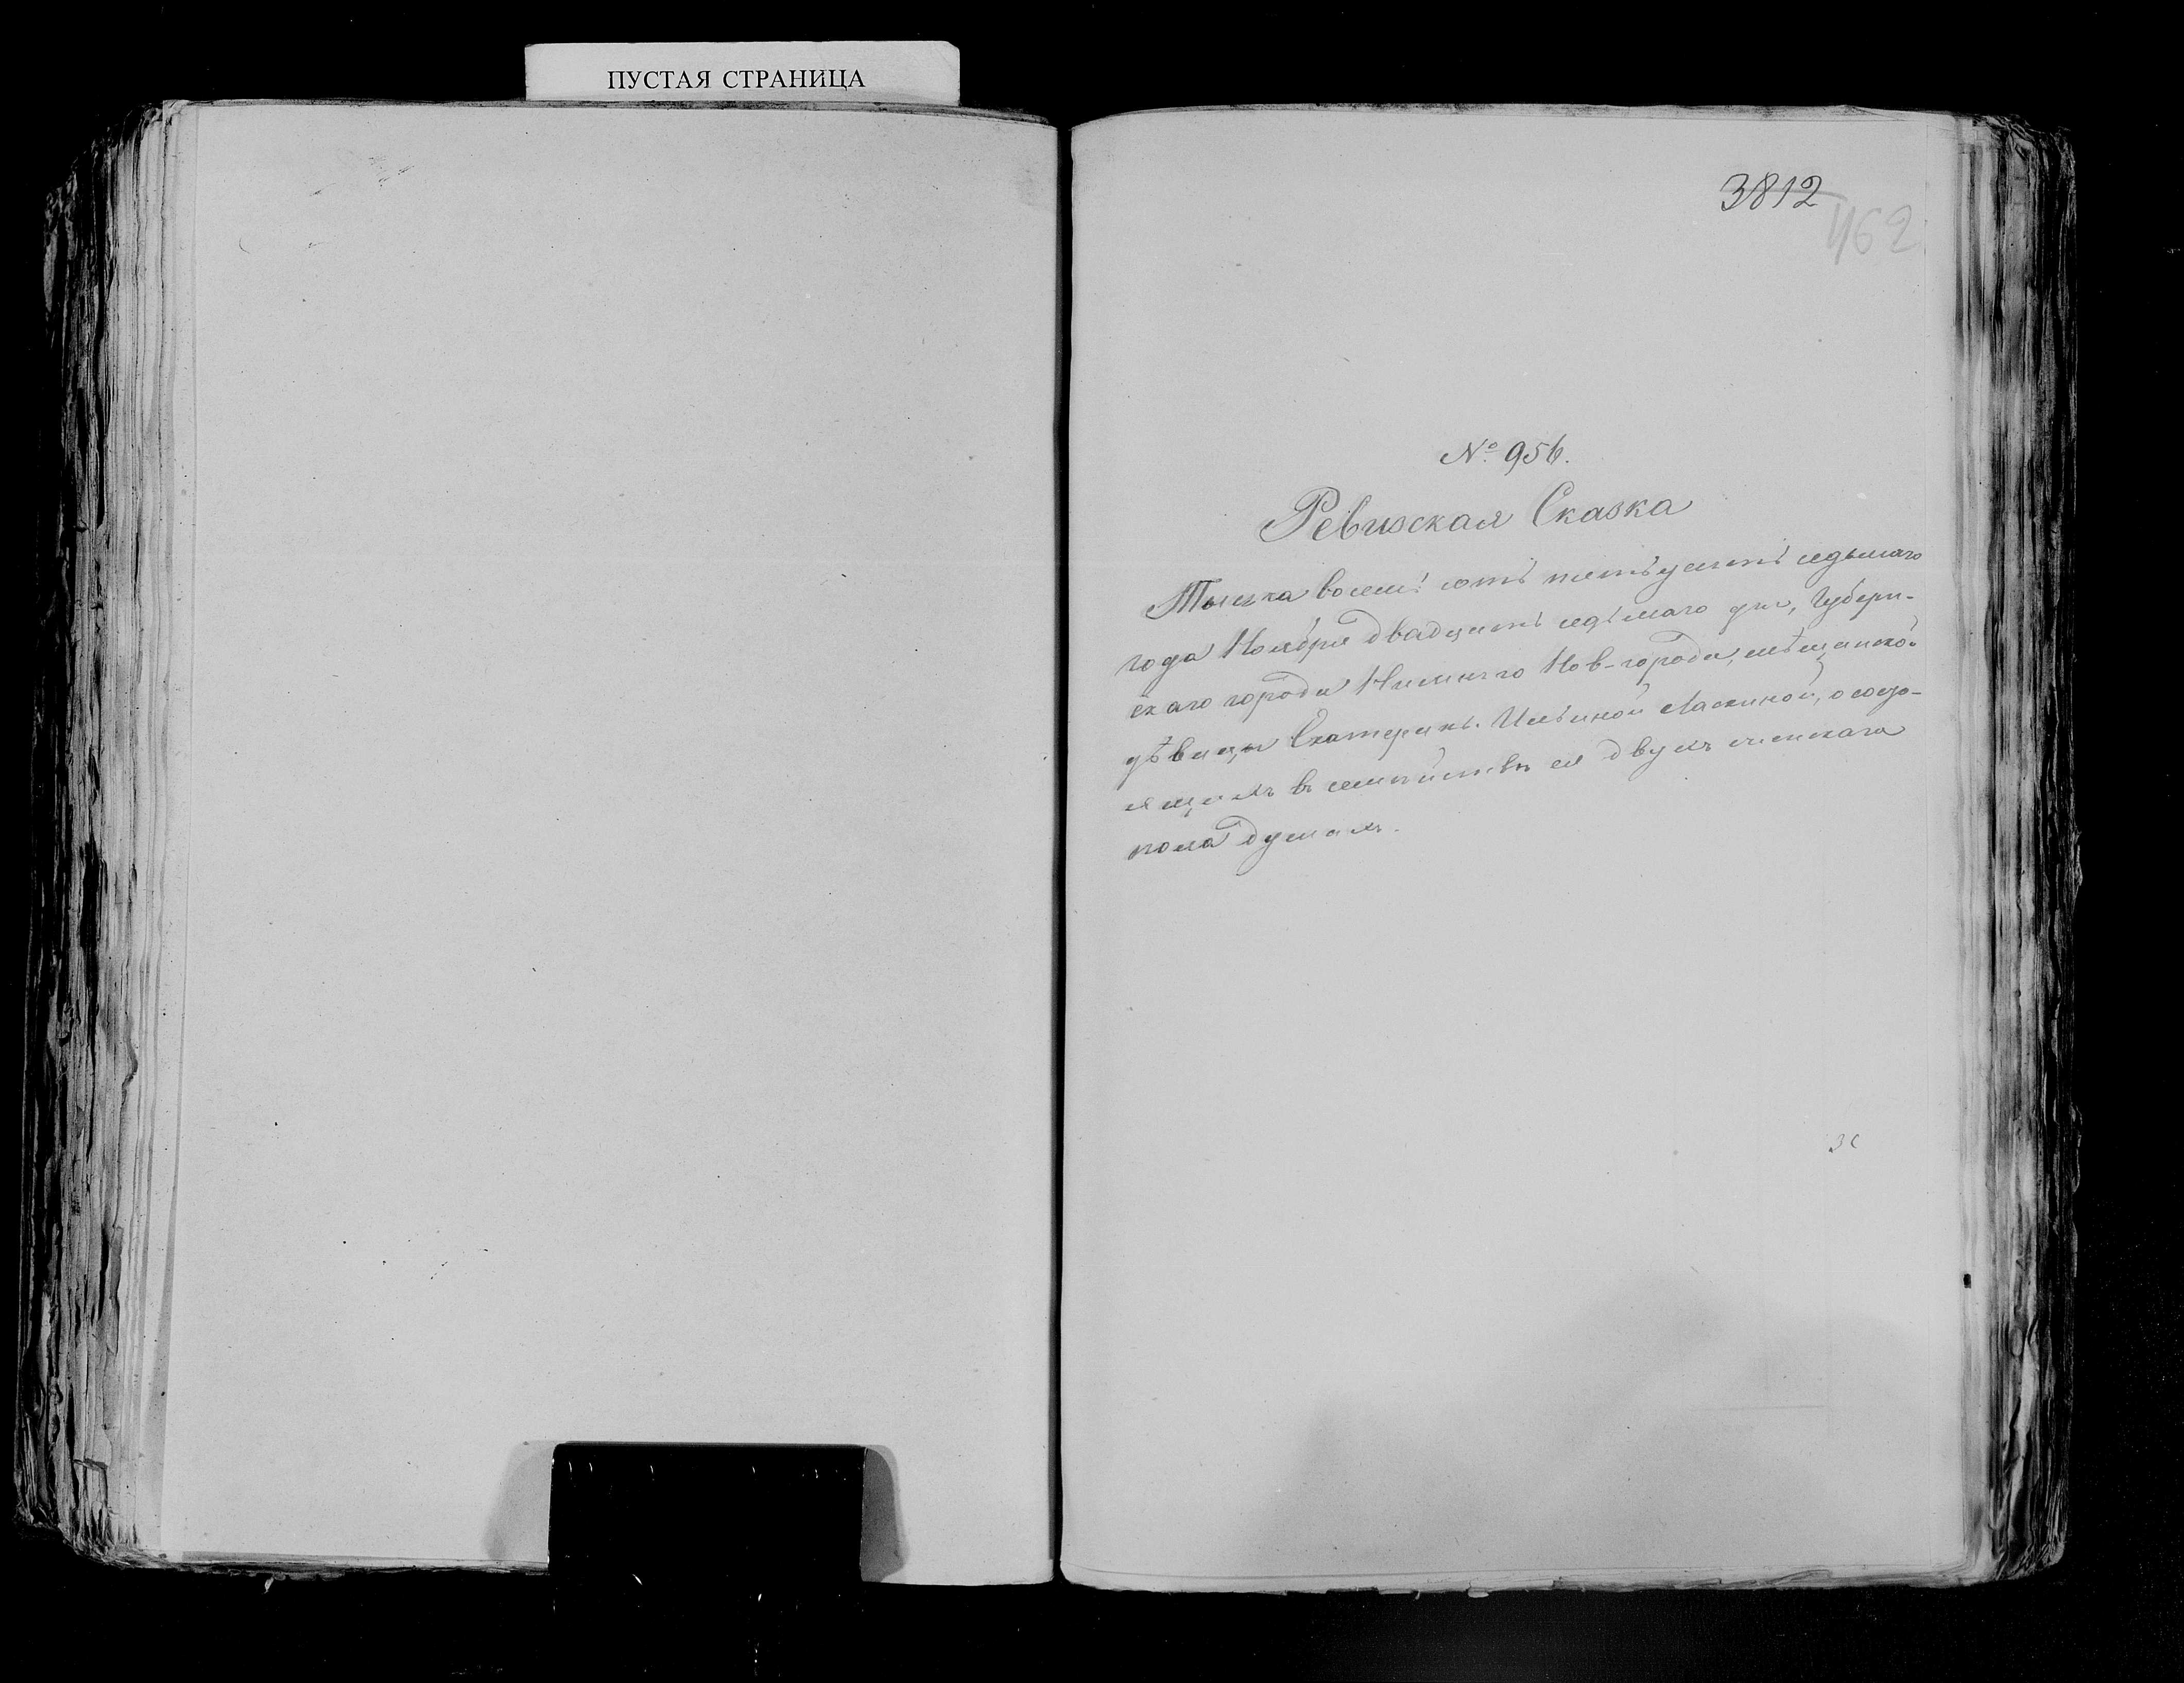 ПУСТАЯ СТРАНИЦА
3812
462
№ 956.
Ревизская Сказка
Тысяча восемь сотъ пятьдесятъ седьмаго
года Ноября двадцать седьмаго дня, Губерн-
скаго города Нижняго Нов-города, мѣщанской
дѣвицы Екатерины Ильиной Ласкиной, о состо-
ящихъ въ семействѣ ея двухъ женскаго
пола душахъ.